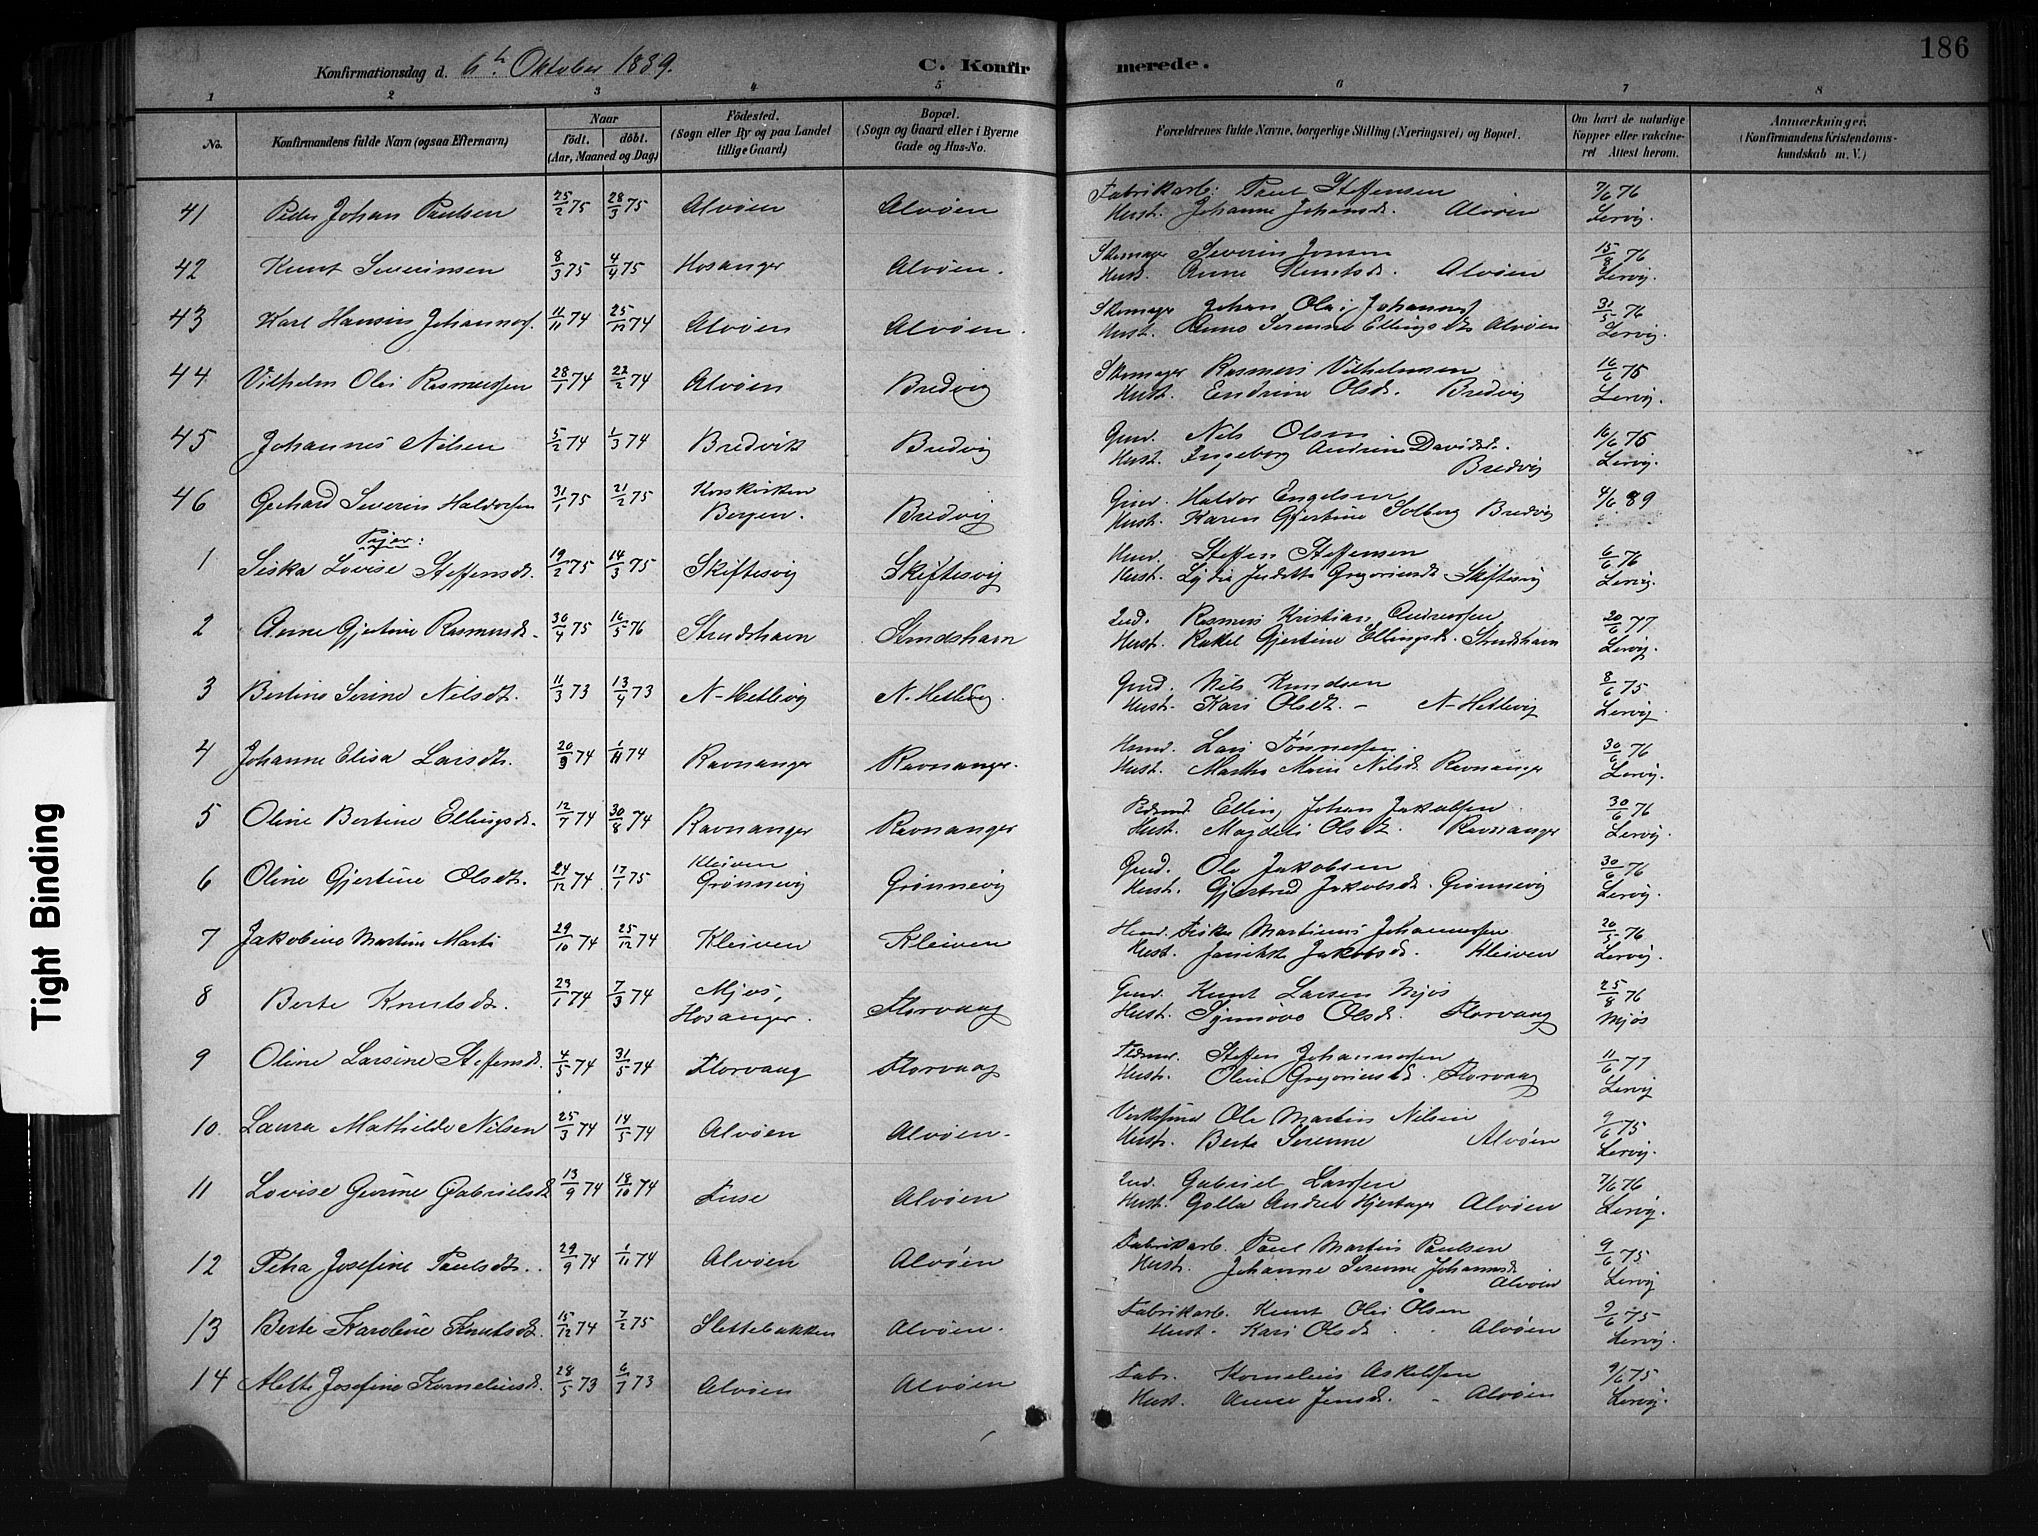 186
Konfirmationsdag d. 6te Oktober 1889. C. Konfirmerede.
1 2 3 4 5 6 7 8
No.
Konfirmandens fulde Navn (ogsaa Efternavn)
Naar
födt. döbt.
(Aar, Maaned og Dag)
Födested.
(Sogn eller By og paa Landet
tillige Gaard)
Bopæl.
(Sogn og Gaard eller i Byerne
Gade og Hus-No.
Forældrenes fulde Navne, borgerlige Stilling (Næringsvei) og Bopæl.
Om havt de naturlige
Kopper eller vakcine-
ret Attest herom.
Anmærkninger.
(Konfirmandens Kristendoms-
kundskab m. V.)
41 Peder Johan Paulsen 25/2 75 28/3 75 Alvøen Alvøen Fabrikarb: Paul Steffensen 7/6 76
Hust. Johanne Johansd. Alvøen Lervig.
42 Knut Severinsen 8/3 75 4/4 75 Hosanger Alvøen. Skomager Severin Jonsen 15/8 76
Hust. Anne Knutsd. Alvøen Lervig.
43 Karl Hansen Johannes. 11/11 74 25/12 74 Alvøen Alvøen. Skomager Johan Olai Johannes 31/5 76
Hust. Anne Serenne Ellingsdt. Alvøen Lervig.
44 Vilhelm Olai Rasmussen 28/1 74 22/2 74 Alvøen Bredvig Skomager Rasmus Vilhelmsen 16/6 75
Hust. Endrine Olsd. Bredvig Lervig.
45 Johannes Nilsen 5/2 74 1/3 74 Bredvik Bredvig Gmd. Nils Olsen 16/6 75
Hust. Ingeborg Andrine Davidsd. Lervig.
Bredvig
46 Gerhard Severin Haldorsen 31/1 75 21/2 75 Korskirken Bredvig Gmd. Haldor Engelsen 4/6 89
Bergen. Hust. Karen Gjertine Solberg Bredvig
Piger:
1 Siska Lovise Steffensdt. 19/2 75 14/3 75 Skiftesvig Skiftesvig Hmd. Steffen Steffensen 6/6 76
Hust. Lydia Judette Gregoriusdt. Skiftesvig Lervig.
2 Anne Gjertine Rasmusd. 30/4 75 16/5 76 Strudshavn Strudshavn Ind. Rasmus Kristian Andreassen 20/6 77
Hust. Rakel Gjertine Ellingsd. Strudshavn Lervig.
3 Bertine Serine Nilsdt. 11/3 73 13/4 73 N-Hetlevig N. Hetlevig. Gmd. Nils Knudsen 8/6 75
Hust. Kari Olsdt. - N-Hetlevig Lervig.
4 Johanne Elisa Larsdt. 20/9 74 1/11 74 Ravnanger Ravnanger. Hmd. Lars Tønnessen 30/6 76
Hust. Martha Marie Nilsd. Ravnanger Lervig.
5 Oline Bertine Ellingsdt. 12/7 74 30/8 74 Ravnanger Ravnanger Elling Johan Jakobsen 30/6 76
Hust. Magdeli Olsdt. Ravnanger Lervig.
6 Oline Gjertine Olsdt. 24/12 74 17/1 75 Kleiven Grønnevig Gmd. Ole Jakobsen 30/6 76
Grønnevig Hust. Gjertrud Jakobsd. Grønnevig Lervig.
7 Jakobine Martine Marti 29/10 74 25/12 74 Kleiven Kleiven Hmd. Fisker Martinus Johannessen 20/5 76
Hust. Jakobsd. Kleiven Lervig.
8 Berte Knutsdt. 23/1 74 7/3 74 Mjøs, Florvaag Gmd. Knut Larsen Mjøs 25/8 76
Hosanger. Hust. Synnøve Olsd. Florvaag Mjøs
9 Oline Larsine Steffensd. 4/5 74 31/5 74 Florvaag Florvaag Steffen Johannessen 11/6 77
Hust. Oline Gregoriusd. Florvaag Lervig
10. Laura Mathilde Nilsen 25/3 74 14/5 74 Alvøen Alvøen. Ole Martin Nilsen 9/6 75
Hust. Berte Serenne Alvøen Lervig.
11 Lovise Gurine Gabrielsdt 13/9 74 18/10 74 Fuse Alvøen Ind. Gabriel Larsen 7/6 76
Hust. Golla Andrea Hjertager Alvøen Lervig.
12 Petra Josefine Paulsdt. 29/9 74 1/11 74 Alvøen Alvøen Fabrikarb. Paul Martin Paulsen 9/6 75
Hust. Johanne Serenne Johannsd. Lervig
Alvøen
13 Berte Karoline Knutsdt. 15/12 74 7/2 75 Slettebakken Alvøen. Fabrikarb. Knut Olai Olsen 9/6 75
Hust. Kari Olsd. Alvøen Lervig.
14 Mette Josefine Korneliusd. 28/5 73 6/7 73 Alvøen Alvøen Fabr. Kornelius Askelsen 9/6 75
Hust. Anne Jensd. - Alvøen Lervig.
Tight Binding